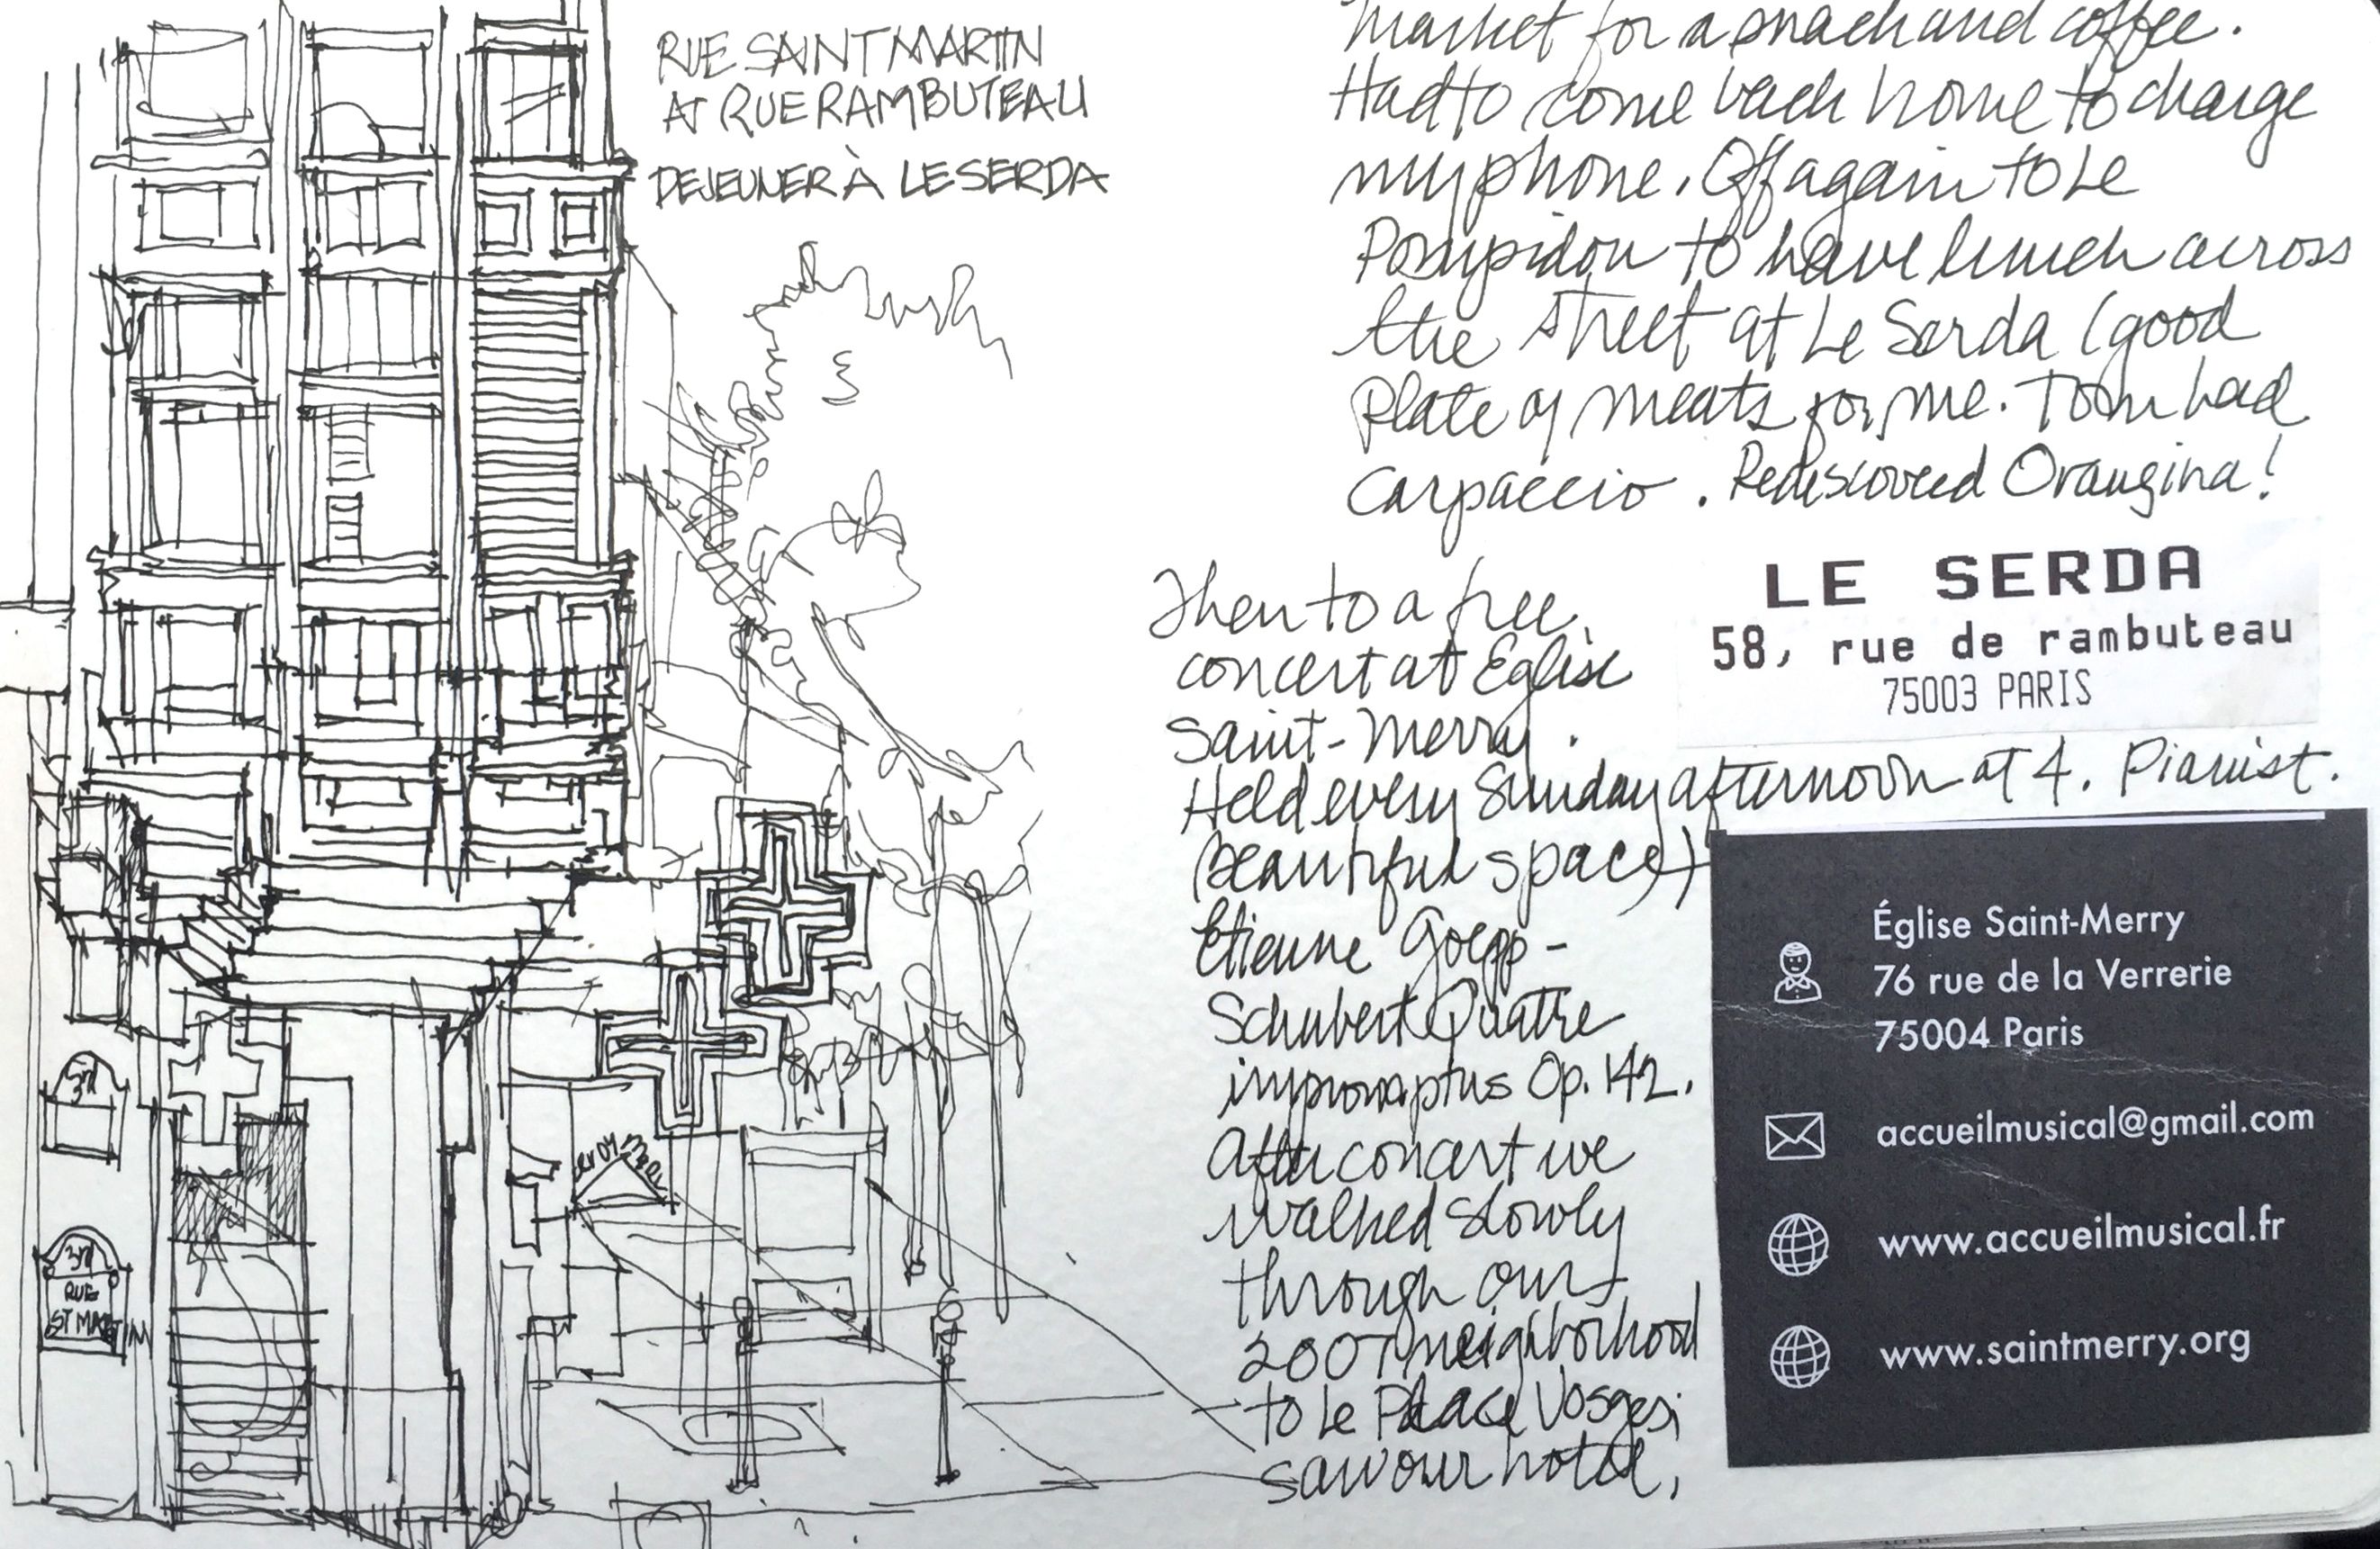 RUE SAINT MARTIN
AT RUE RAMBUTEAU
DEJEUNER À LE SERDA
market for a snack and coffee.
Had to come back home to charge
my phone. Off again to Le
Pompidou to have lunch across
the street at Le Serda (good
Plate of meats for me. Tom had
Carpaccio. Rediscovered Orangina!
LE SERDA
58, rue de rambuteau
75003 PARIS
Then to a free
concert at Eglise
Saint-Merry.
Held every Sunday afternoon at 4. Pianist.
(beautiful space)
Etienne Goepp -
Schubert Quatre
impromptus Op. 142.
After concert we
walked slowly
through our
2007 neighborhood
to Le Place Vosges;
saw our hotel,
Église Saint-Merry
76 rue de la Verrerie
75004 Paris
accueilmusical@gmail.com
www.accueilmusical.fr
www.saintmerry.org
3rd
3rd
RUE
ST MARTIN